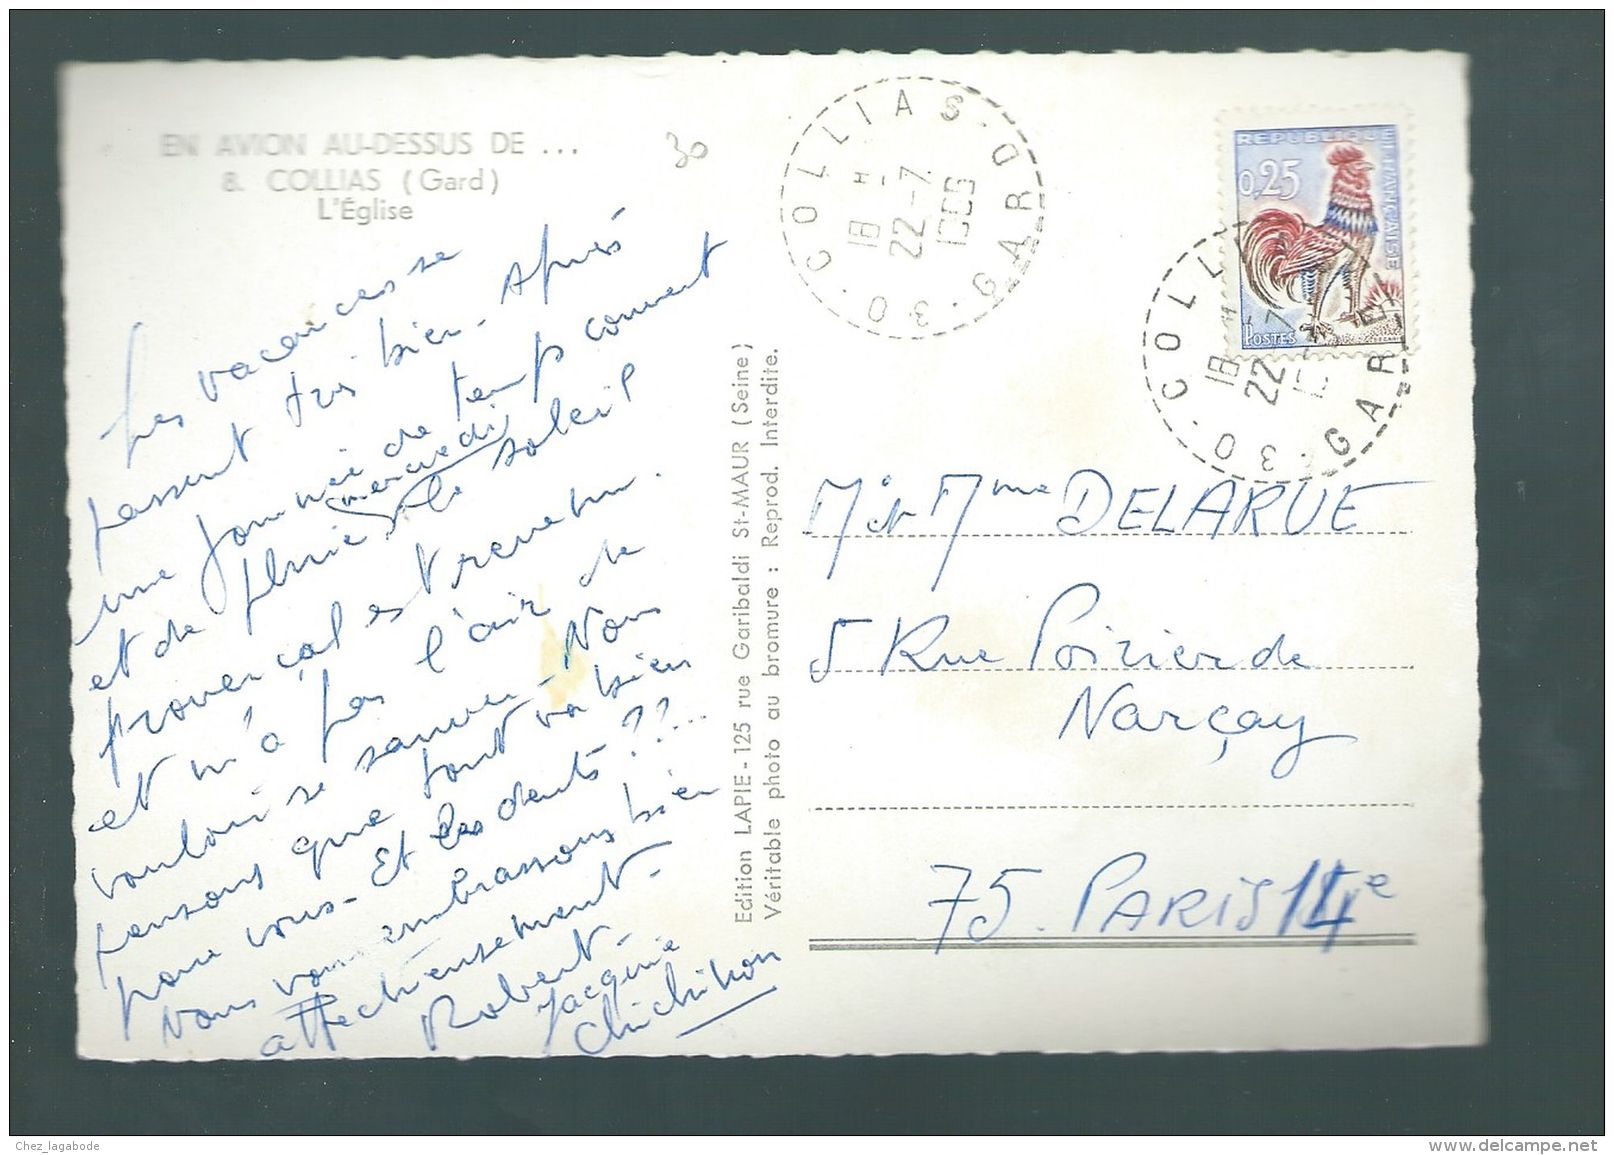 EN AVION AU-DESSUS DE ...
8. COLLIAS (Gard)
L'Église
30
Les vacances se
passent très bien - Après
une journée de temps couvert
et de pluie mercredi le soleil
provençal est revenu.
et n'a pas l'air de
vouloir se sauver - Nous
pensons que tout va bien
pour vous - Et les dents ??...
Nous vous embrassons bien
affectueusement -
Robert -
Jacquie
Edition LAPIE - 125 rue Garibaldi St-MAUR (Seine)
Véritable photo au bromure : Reprod. Interdite.
COLLIAS · GARD · 30 ·
18 H
22 - 7
REPUBLIQUE FRANÇAISE
0,25
POSTES
COLLIAS · GARD · 30 ·
18 H
22 - 7
M et Mme DELARUE
5 Rue Poirier de
Narçay
75. PARIS 14e
Chez_lagabode
www.delcampe.net